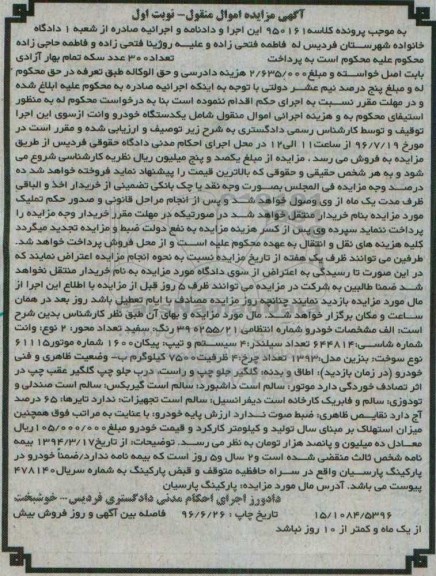 آگهی مزایده اموال منقول- نوبت اول
به موجب پرونده کلاسه ۹۵۰۱۶۱ این اجرا و دادنامه و اجرائیه صادره از شعبه ۱ دادگاه
خانواده شهرستان فردیس له فاطمه فتحی زاده و علیه روژینا فتحی زاده و فاطمه حاجی زاده
محکوم علیه محکوم است به پرداخت تعداد ۳۰۰ عدد سکه تمام بهار آزادی
بابت اصل خواسته و مبلغ ۲/۶۳۵/۰۰۰ هزینه دادرسی و حق الوکاله طبق تعرفه در حق محکوم
له و مبلغ پنج درصد نیم عشر دولتی با توجه به اینکه اجرائیه صادره به محکوم علیه ابلاغ شده
و در مهلت مقرر نسبت به اجرای حکم اقدام ننموده است بنا به درخواست محکوم له به منظور
استیفای محکوم به و هزینه اجرائی اموال منقول شامل یکدستگاه خودرو وانت ازسوی این اجرا
توقیف و توسط کارشناس رسمی دادگستری به شرح زیر توصیف و ارزیابی شده و مقرر است در
مورخ ۹۶/۷/۱۹ از ساعت ۱۱ الی ۱۲ در محل اجرای احکام مدنی دادگاه حقوقی فردیس از طریق
مزایده به فروش می رسد. مزایده از مبلغ یکصد و پنج میلیون ریال نظریه کارشناسی شروع می
شود و به هر شخص حقیقی و حقوقی که بالاترین قیمت را پیشنهاد نماید فروخته خواهد شد ده
درصد وجه مزایده فی المجلس بصورت وجه نقد یا چک بانکی تضمینی از خریدار اخذ و الباقی
ظرف مدت یک ماه از وی وصول خواهد شد و پس از انجام مراحل قانونی و صدور حکم تملیک
مورد مزایده بنام خریدار منتقل خواهد شد در صورتیکه در مهلت مقرر خریدار وجه مزایده را
پرداخت ننماید سپرده وی پس از کسر هزینه مزایده به نفع دولت ضبط و مزایده تجدید میگردد
کلیه هزینه های نقل و انتقال به عهده محکوم علیه است و از محل فروش پرداخت خواهد شد.
طرفین می توانند ظرف یک هفته از تاریخ مزایده نسبت به نحوه انجام مزایده اعتراض نمایند که
در این صورت تا رسیدگی به اعتراض از سوی دادگاه مورد مزایده به نام خریدار منتقل نخواهد
شد ضمنا طالبین به شرکت در مزایده می توانند ظرف ۵ روز قبل از مزایده با اطلاع این اجرا از
مال مورد مزایده بازدید نمایند چنانچه روز مزایده مصادف با ایام تعطیل باشد روز بعد در همان
ساعت و مکان برگزار خواهد شد. مال مورد مزایده و بهای آن طبق نظر کارشناس بدین شرح
است: الف مشخصات خودرو شماره انتظامی ۲۱/ ۲۵۵ رنگ: سفید تعداد محور: ۲ نوع: وانت
شماره شاسی: ۶۴۴۸۱۴ تعداد سیلندر: ۴ سیستم و تیپ: پیکان ۱۶۰۰ شماره موتور ۶۱۱۱۵
نوع سوخت: بنزین مدل: ۱۳۹۳ تعداد چرخ: ۴ ظرفیت ۷۵۰ کیلوگرم ب- وضعیت ظاهری و فنی
خودرو (در زمان بازدید): اطاق و بدنه: گلگیر جلو چپ و راست، درب جلو چپ گلگیر عقب چپ در
اثر تصادف خوردگی دارد موتور: سالم است داشبورد: سالم است گیربکس: سالم است صندلی و
تودوزی: سالم و فابریک کارخانه است دیفرانسیل: سالم است تجهیزات: ندارد تایرها: ۶۵ درصد
آج دارد نقایص ظاهری: ضبط صوت ندارد ارزش پایه خودرو: با عنایت به مراتب فوق همچنین
میزان استهلاک بر مبنای سال تولید و کیلومتر کارکرد و قیمت خودرو مبلغ ۱۰۵/۰۰۰/۰۰۰ ریال
معادل ده میلیون و پانصد هزار تومان به نظر می رسد. توضیحات: از تاریخ ۱۳۹۴/۳/۱۷ بیمه
نامه شخص ثالث منقضی شده است و ۲ سال و ۵ روز است که بیمه نامه ندارد/ضمناً خودرو در
پارکینگ پارسیان واقع در سه راه حافظیه متوقف و قبض پارکینگ به شماره سریال ۴۷۸۱۴۰
پیوست می باشد. آدرس مال مورد مزایده: پارکینگ پارسیان
دادورز اجرای احکام مدنی دادگستری فردیس- خوشبخت
۱۵/۱۰۸۴/۵۳۹۶ تاریخ چاپ: ۹۶/۶/۲۶ فاصله بین آگهی و روز فروش بیش
از یک ماه و کمتر از ۱۰ روز نباشد